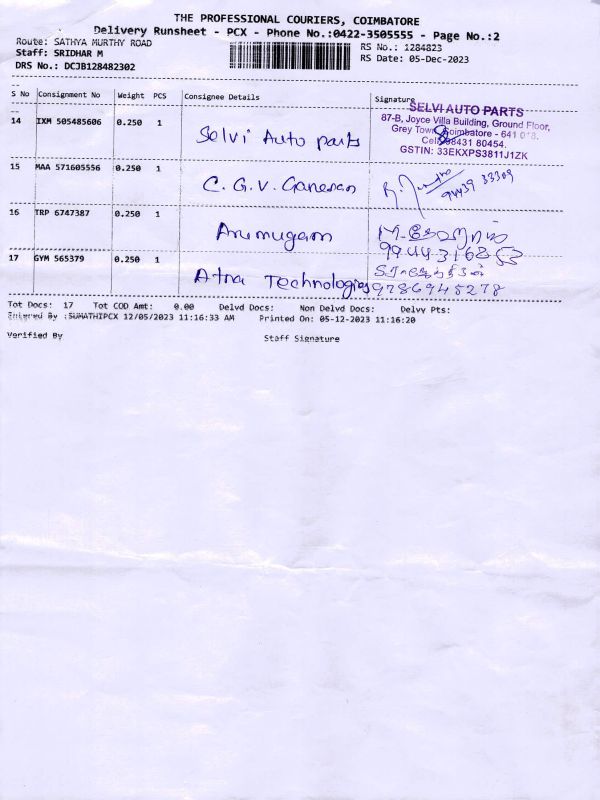 THE PROFESSIONAL COURIERS, COIMBATORE
Delivery Runsheet - PCX - Phone No.:0422-3505555 - Page No.:2
Route: SATHYA MURTHY ROAD RS No.: 1284823
Staff: SRIDHAR M RS Date: 05-Dec-2023
DRS No.: DCJB128482302
S No Consignment No Weight PCS Consignee Details Signature
SELVI AUTO PARTS
87-B, Joyce Villa Building, Ground Floor,
Grey Town, Coimbatore - 641 018.
Cell: 98431 80454.
GSTIN: 33EKXPS3811J1ZK
14 IXM 505485606 0.250 1 Selvi Auto parts
15 MAA 571605556 0.250 1 C. G. V. Ganesan 94439 33309
16 TRP 6747387 0.250 1 Arumugam
17 GYM 565379 0.250 1 Atna Technologies 9786945278
Tot Docs: 17 Tot COD Amt: 0.00 Delvd Docs: Non Delvd Docs: Delvy Pts:
Entered By :SUMATHIPCX 12/05/2023 11:16:33 AM Printed On: 05-12-2023 11:16:20
Verified By Staff Signature